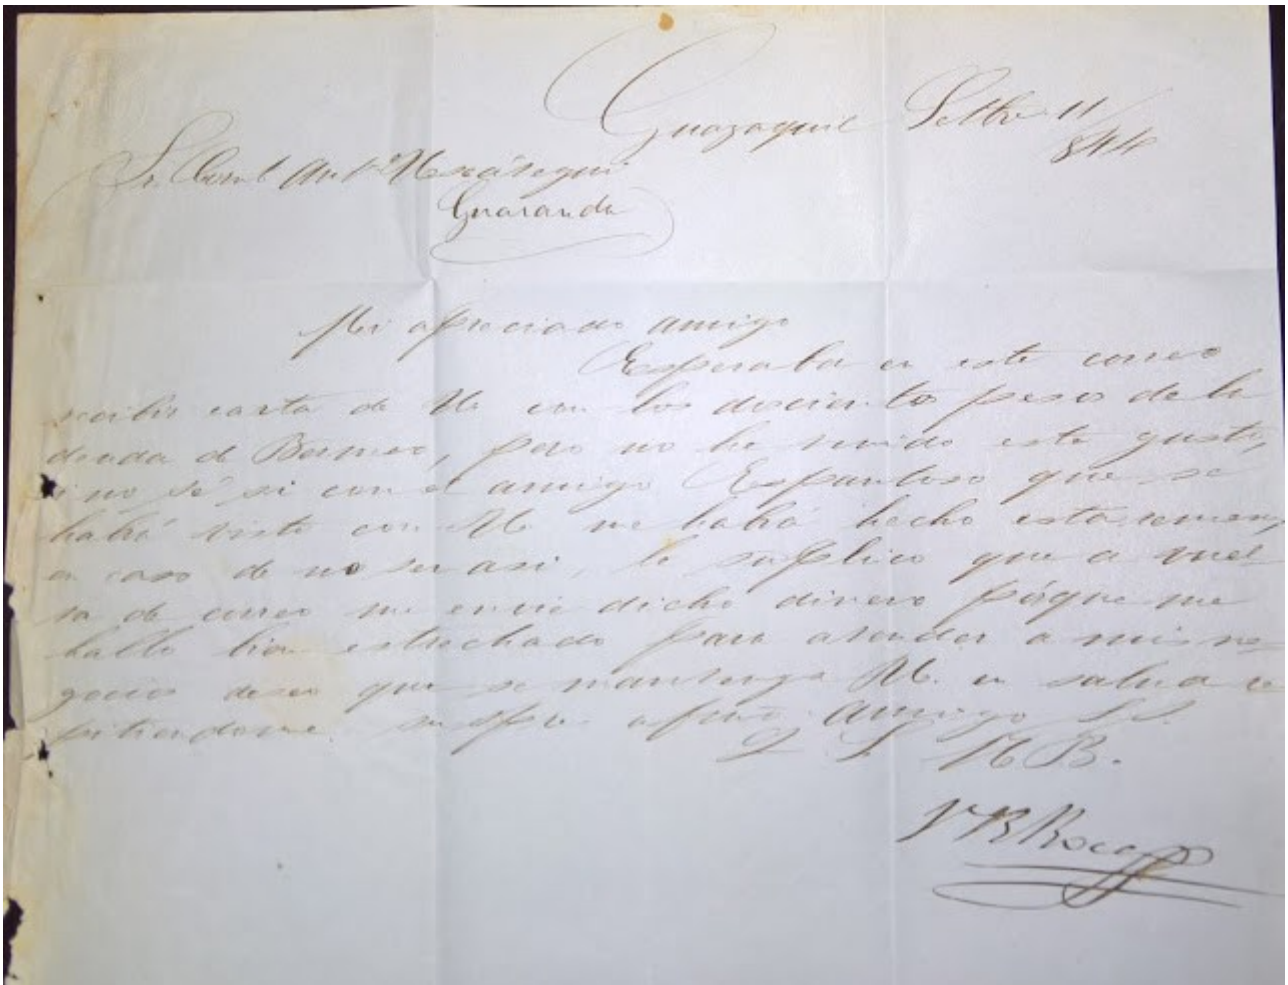 Guayaquil Setbre 11/
844
Sr. Coronl Anto Uscátegui
Guaranda
Mi apreciado amigo
Esperaba en este correo
recibir carta de U. con los docientos pesos de la
deuda de Bermeo, pero no he tenido este gusto,
i no sé si con el amigo Espantoso que se
habrá visto con U. me habrá hecho esta remesa,
en caso de no ser asi, le suplico que a vuel-
ta de correo me envie dicho dinero pórque me
hallo bien estrechado para atender a mis ne-
gocios deseo que se mantenga U. en salud re
pitiendome su apmo. amigo S.S.
Q S M B.
V R Roca